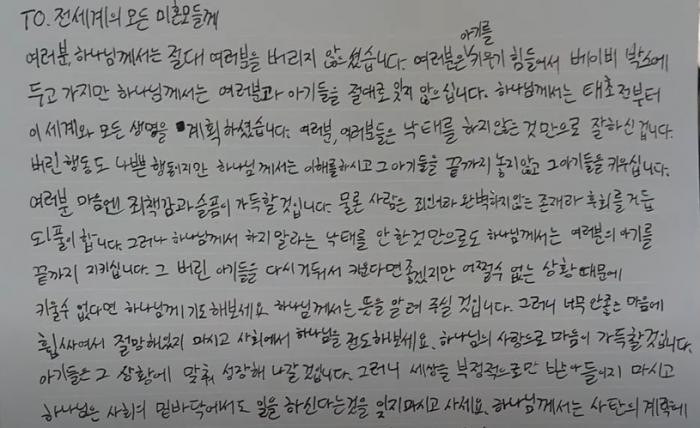 TO. 전세계의 모든 미혼모들께
여러분, 하나님께서는 절대 여러분을 버리지 않으셨습니다. 여러분은 아기를 키우기 힘들어서 베이비 박스에
두고 가지만 하나님께서는 여러분과 아기들을 절대로 잊지 않으십니다. 하나님께서는 태초전부터
이 세계와 모든 생명을 계획하셨습니다. 여러분, 여러분들은 낙태를 하지않는 것만으로 잘하신 겁니다.
버린 행동도 나쁜 행동이지만 하나님께서는 이해를하시고 그아기들을 끝까지 놓지않고 그아기들을 키우십니다.
여러분 마음엔 죄책감과 슬픔이 가득할 것입니다. 물론 사람은 죄인이라 완벽하지않는 존재라 후회를 거듭
되풀이 합니다. 그러나 하나님께서 하지 말라는 낙태를 안 한것 만으로도 하나님께서는 여러분의 아기를
끝까지 지키십니다. 그 버린 아기들을 다시 거둬서 키운다면 좋겠지만 어쩔수 없는 상황 때문에
키울수 없다면 하나님께 기도해보세요. 하나님께서는 뜻을 알려 주실 것입니다. 그러니 너무 안좋은 마음에
휩싸여서 절망해있지 마시고 사회에서 하나님을 전도해보세요. 하나님의 사랑으로 마음이 가득할것입니다.
아기들은 그 상황에 맞춰 성장해 나갈 것입니다. 그러니 세상을 부정적으로만 받아들이지 마시고
하나님은 사회의 밑바닥에서도 일을 하신다는것을 잊지마시고 사세요. 하나님께서는 사탄의 계략에